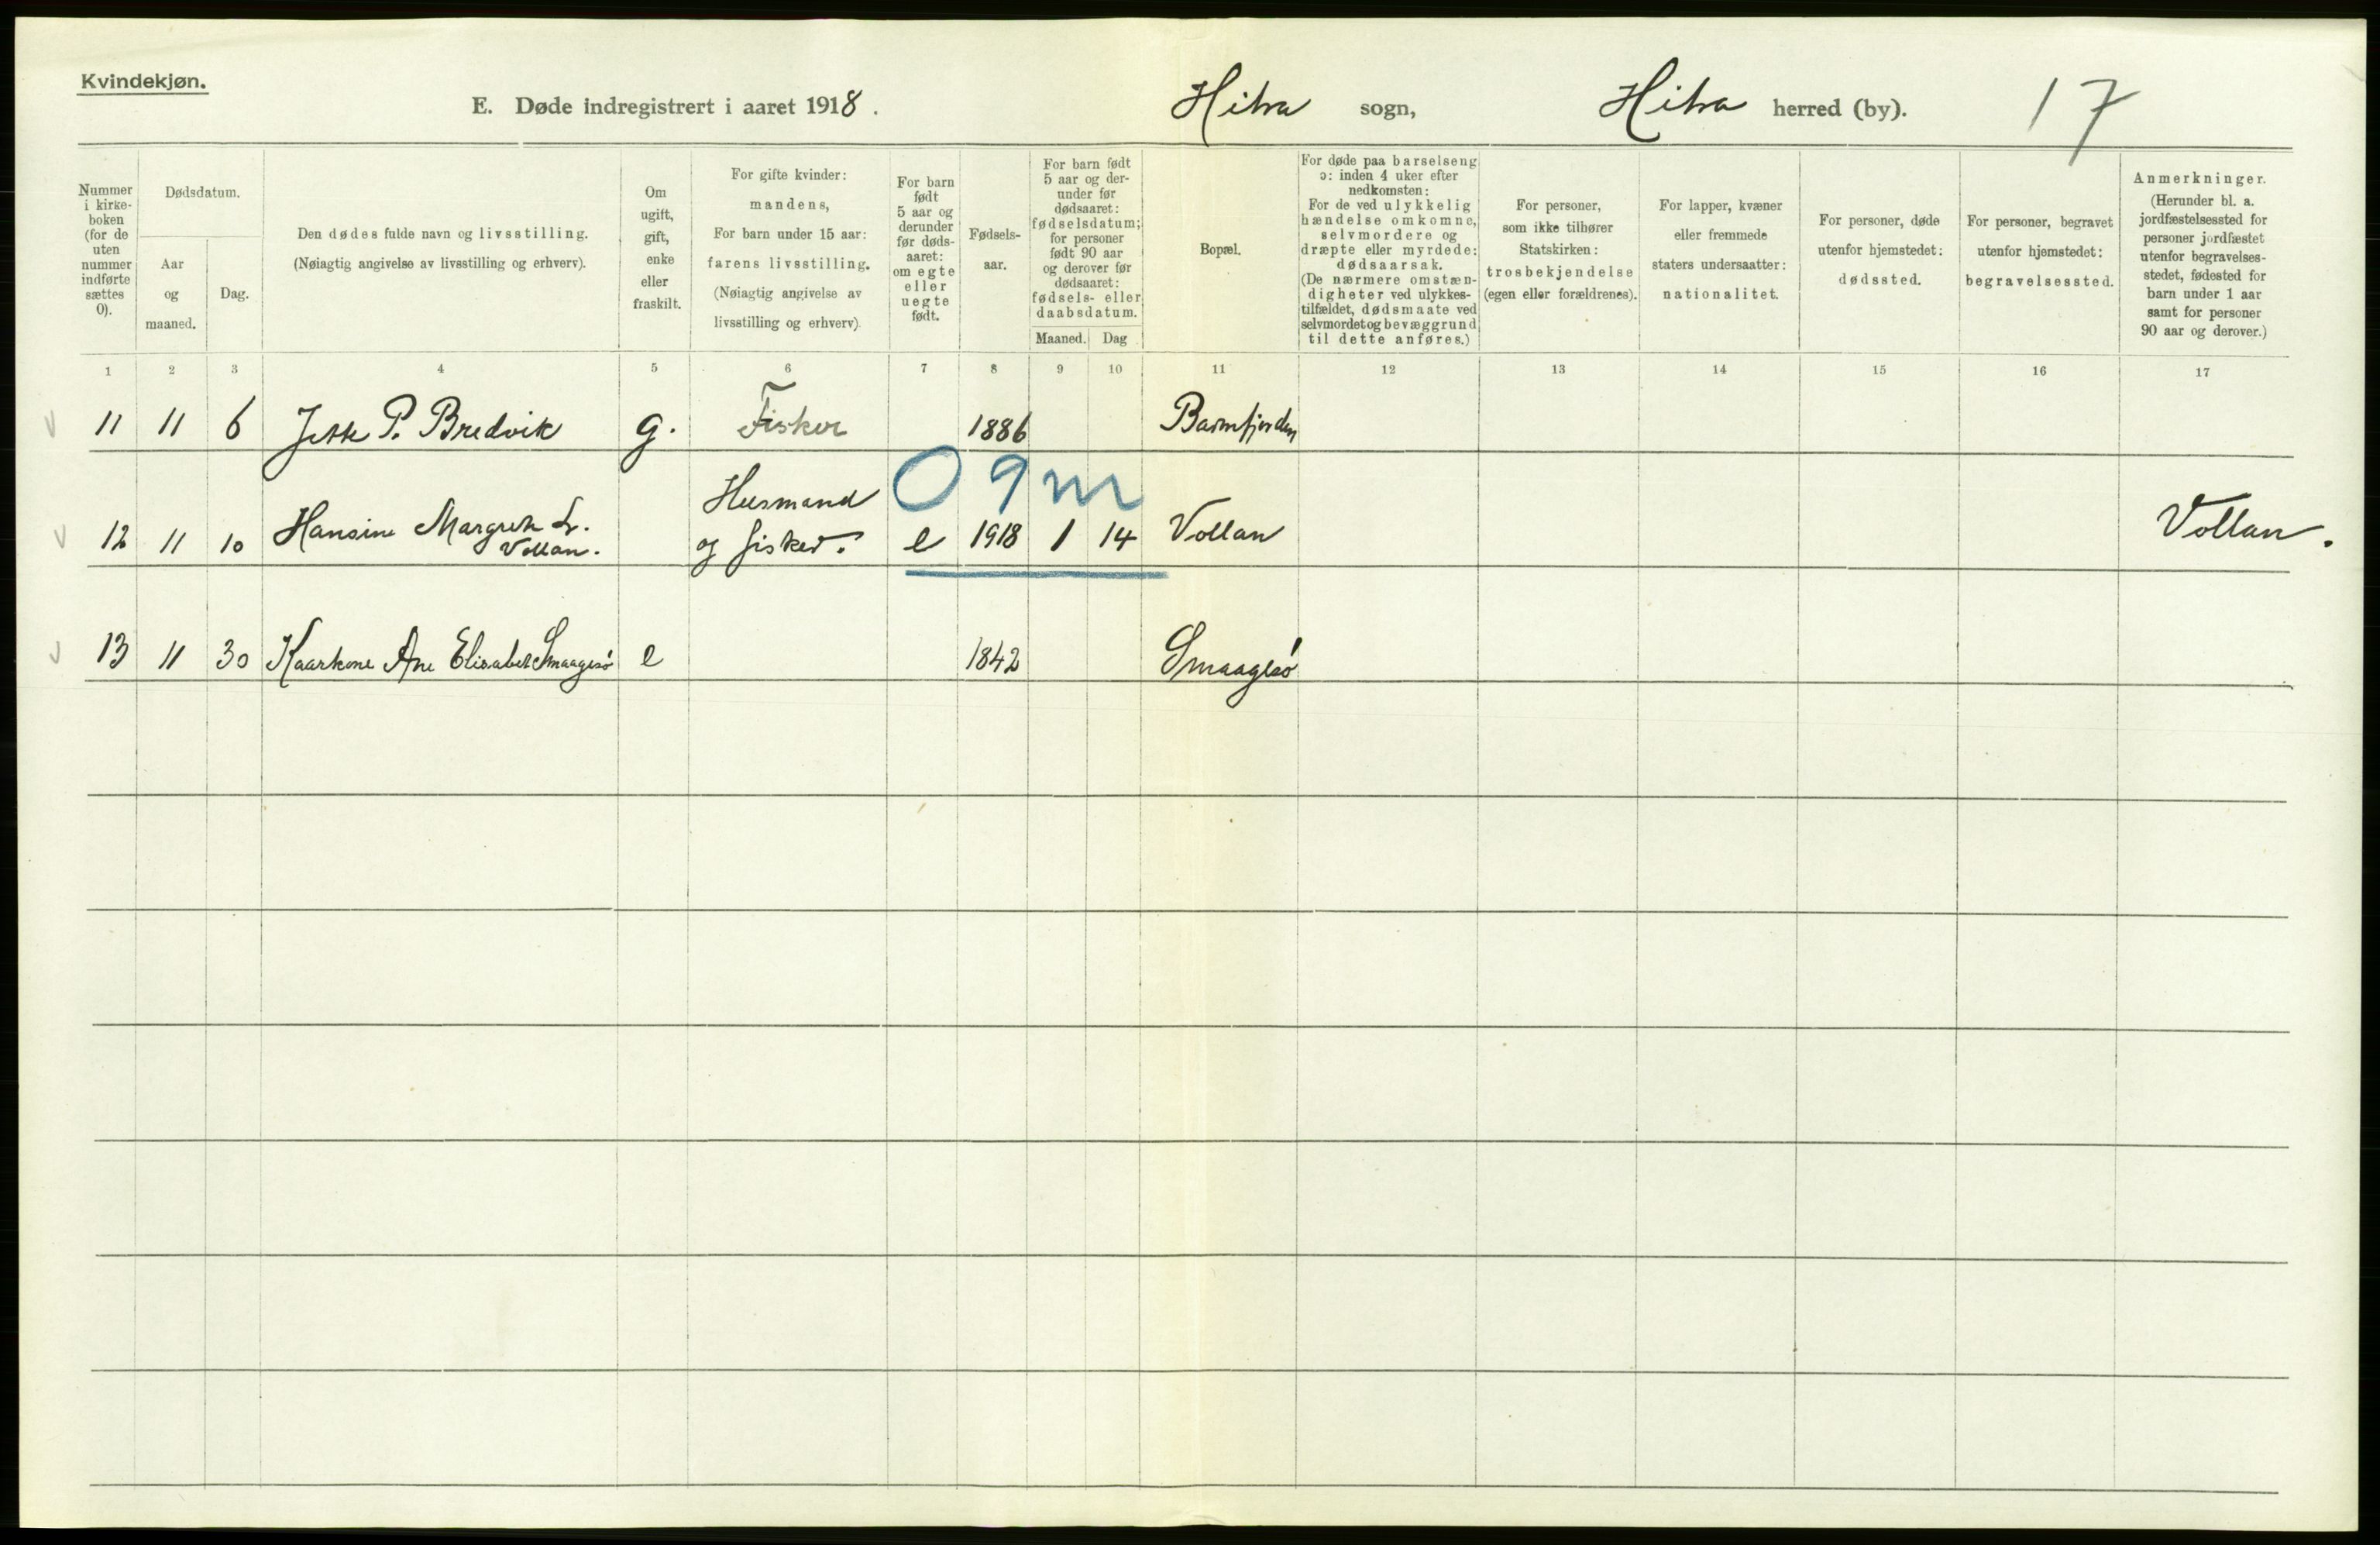 Kvindekjøn.
E. Døde indregistrert i aaret 1918.
Hitra sogn,
Hitra herred (by).
17
Nummer i kirke-boken (for de uten nummer indførte sættes 0).
Dødsdatum.
Aar og maaned.
Dag.
Den dødes fulde navn og livsstilling.
(Nøiagtig angivelse av livsstilling og erhverv).
Om ugift, gift, enke eller fraskilt.
For gifte kvinder: mandens,
For barn under 15 aar: farens livsstilling.
(Nøiagtig angivelse av livsstilling og erhverv).
For barn født 5 aar og derunder før døds-aaret: om egte eller uegte født.
Fødsels-aar.
For barn født 5 aar og der-under før dødsaaret: fødselsdatum; for personer født 90 aar og derover før dødsaaret: fødsels- eller daabsdatum.
Maaned.
Dag
Bopæl.
For døde paa barselseng ɔ: inden 4 uker efter nedkomsten:
For de ved ulykkelig hændelse omkomne, selvmordere og dræpte eller myrdede: dødsaarsak.
(De nærmere omstæn-digheter ved ulykkes-tilfældet, dødsmaate ved selvmordet og bevæggrund til dette anføres.)
For personer, som ikke tilhører Statskirken: trosbekjendelse (egen eller forældrenes).
For lapper, kvæner eller fremmede staters undersaatter: nationalitet.
For personer, døde utenfor hjemstedet: dødssted.
For personer, begravet utenfor hjemstedet: begravelsessted.
Anmerkninger.
(Herunder bl. a. jordfæstelsessted for personer jordfæstet utenfor begravelses-stedet, fødested for barn under 1 aar samt for personer 90 aar og derover.)
1 2 3 4 5 6 7 8 9 10 11 12 13 14 15 16 17
11 11 6 P. Bredvik g. Fisker 1886 Barmfjorden
0 9 m
12 11 10 Hansine Margrete L. Vollan. Husmand og fisker. e 1918 1 14 Vollan Vollan.
13 11 30 Kaarkone Ane Elisabet Smaagesø e 1842 Smaagesø